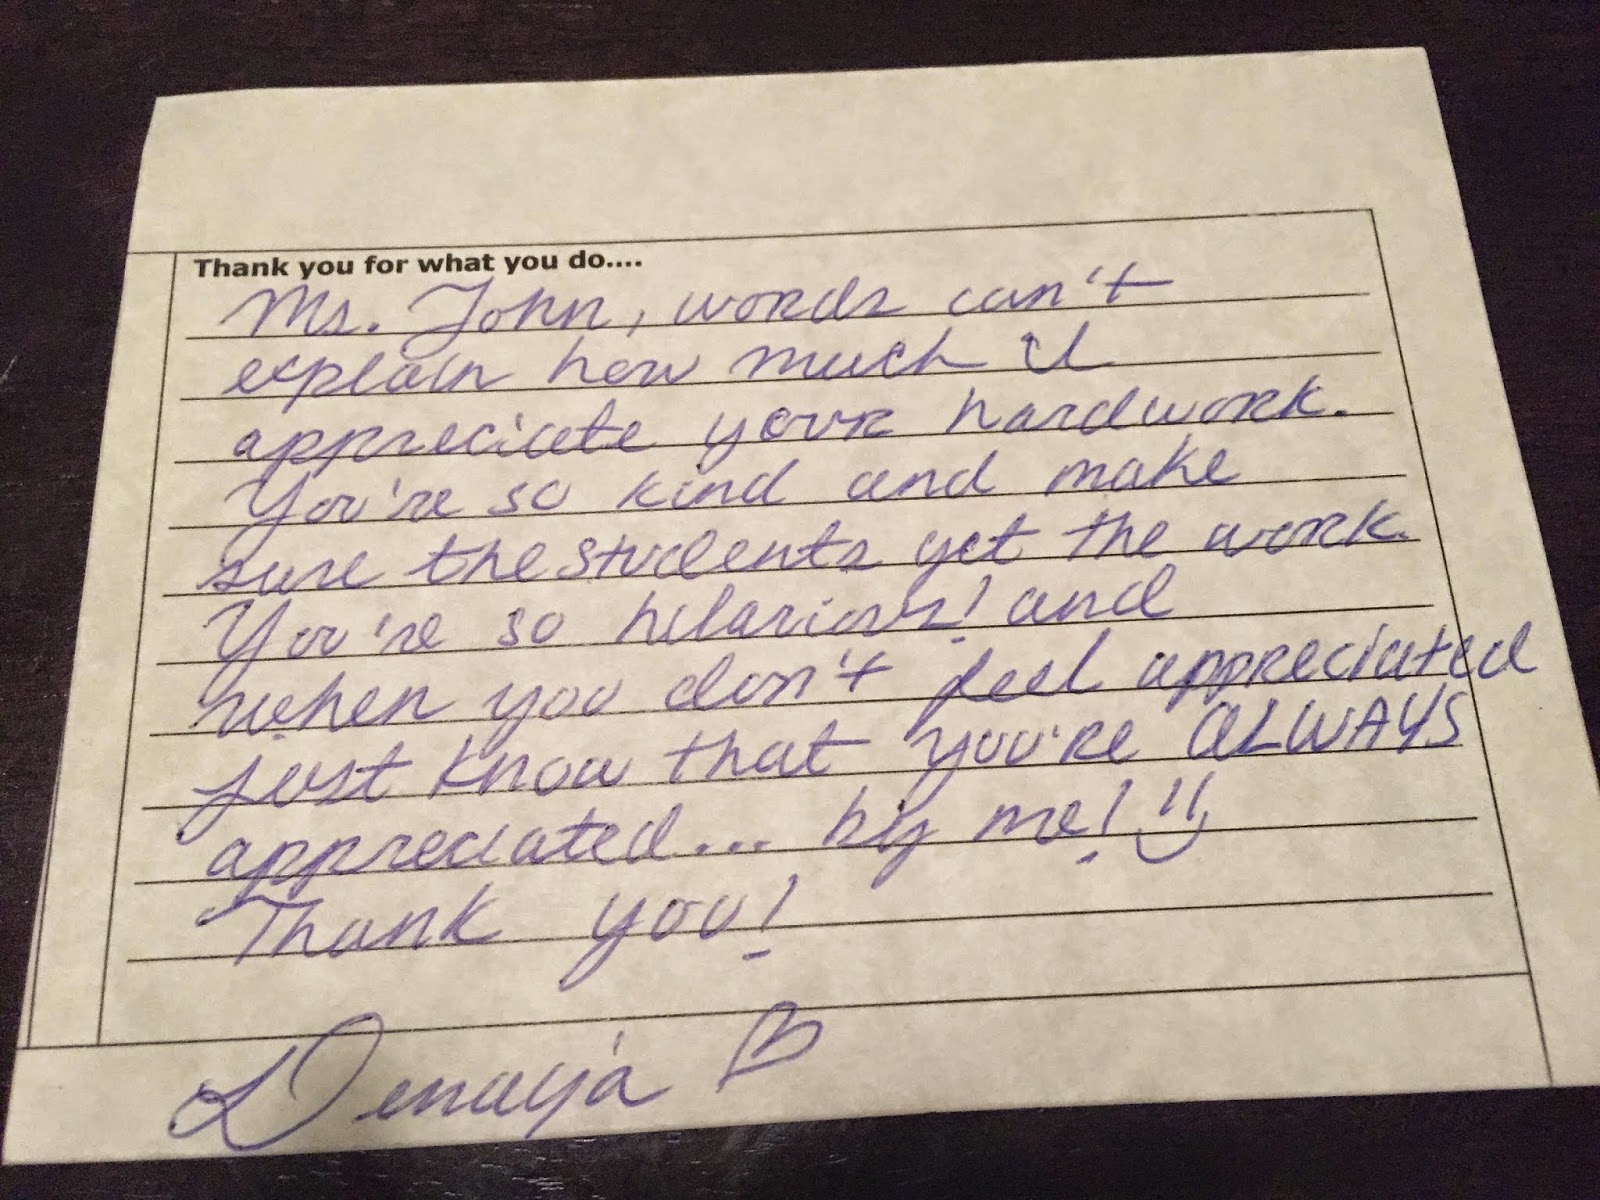 Thank you for what you do....
Ms. John, words can't
explain how much I
appreciate your hardwork.
You're so kind and make
sure the students get the work.
You're so hilarious! and
when you don't feel appreciated
just know that you're ALWAYS
appreciated... by me!
Thank you!